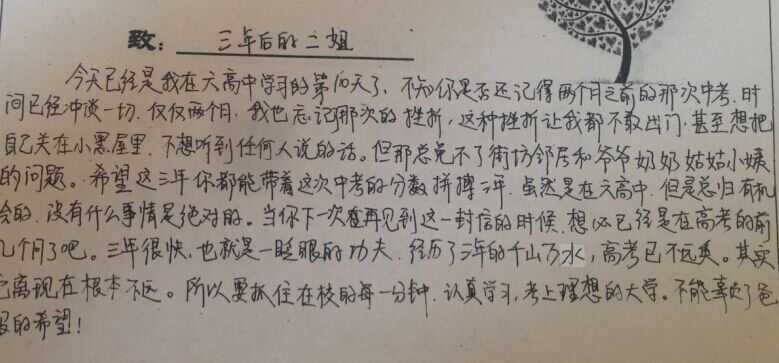 致: 三年后的二姐
今天已经是我在六高中学习的第10天了,不知你是否还记得两个月之前的那次中考.时
间已经冲淡一切.仅仅两个月.我也忘记那次的挫折,这种挫折让我都不敢出门.甚至想把
自己关在小黑屋里.不想听到任何人说的话。但那总免不了街坊邻居和爷爷奶奶姑姑小姨
的问题。希望这三年你都能带着这次中考的分数拼搏三年.虽然是在六高中.但是总归有机
会的.没有什么事情是绝对的。当你下一次再见到这一封信的时候.想必已经是在高考的前
几个月了吧。三年很快.也就是一眨眼的功夫.经历了三年的千山万水,高考已不远矣。其实
它离现在根本不远。所以要抓住在校的每一分钟.认真学习,考上理想的大学。不能辜负了爸
的希望!